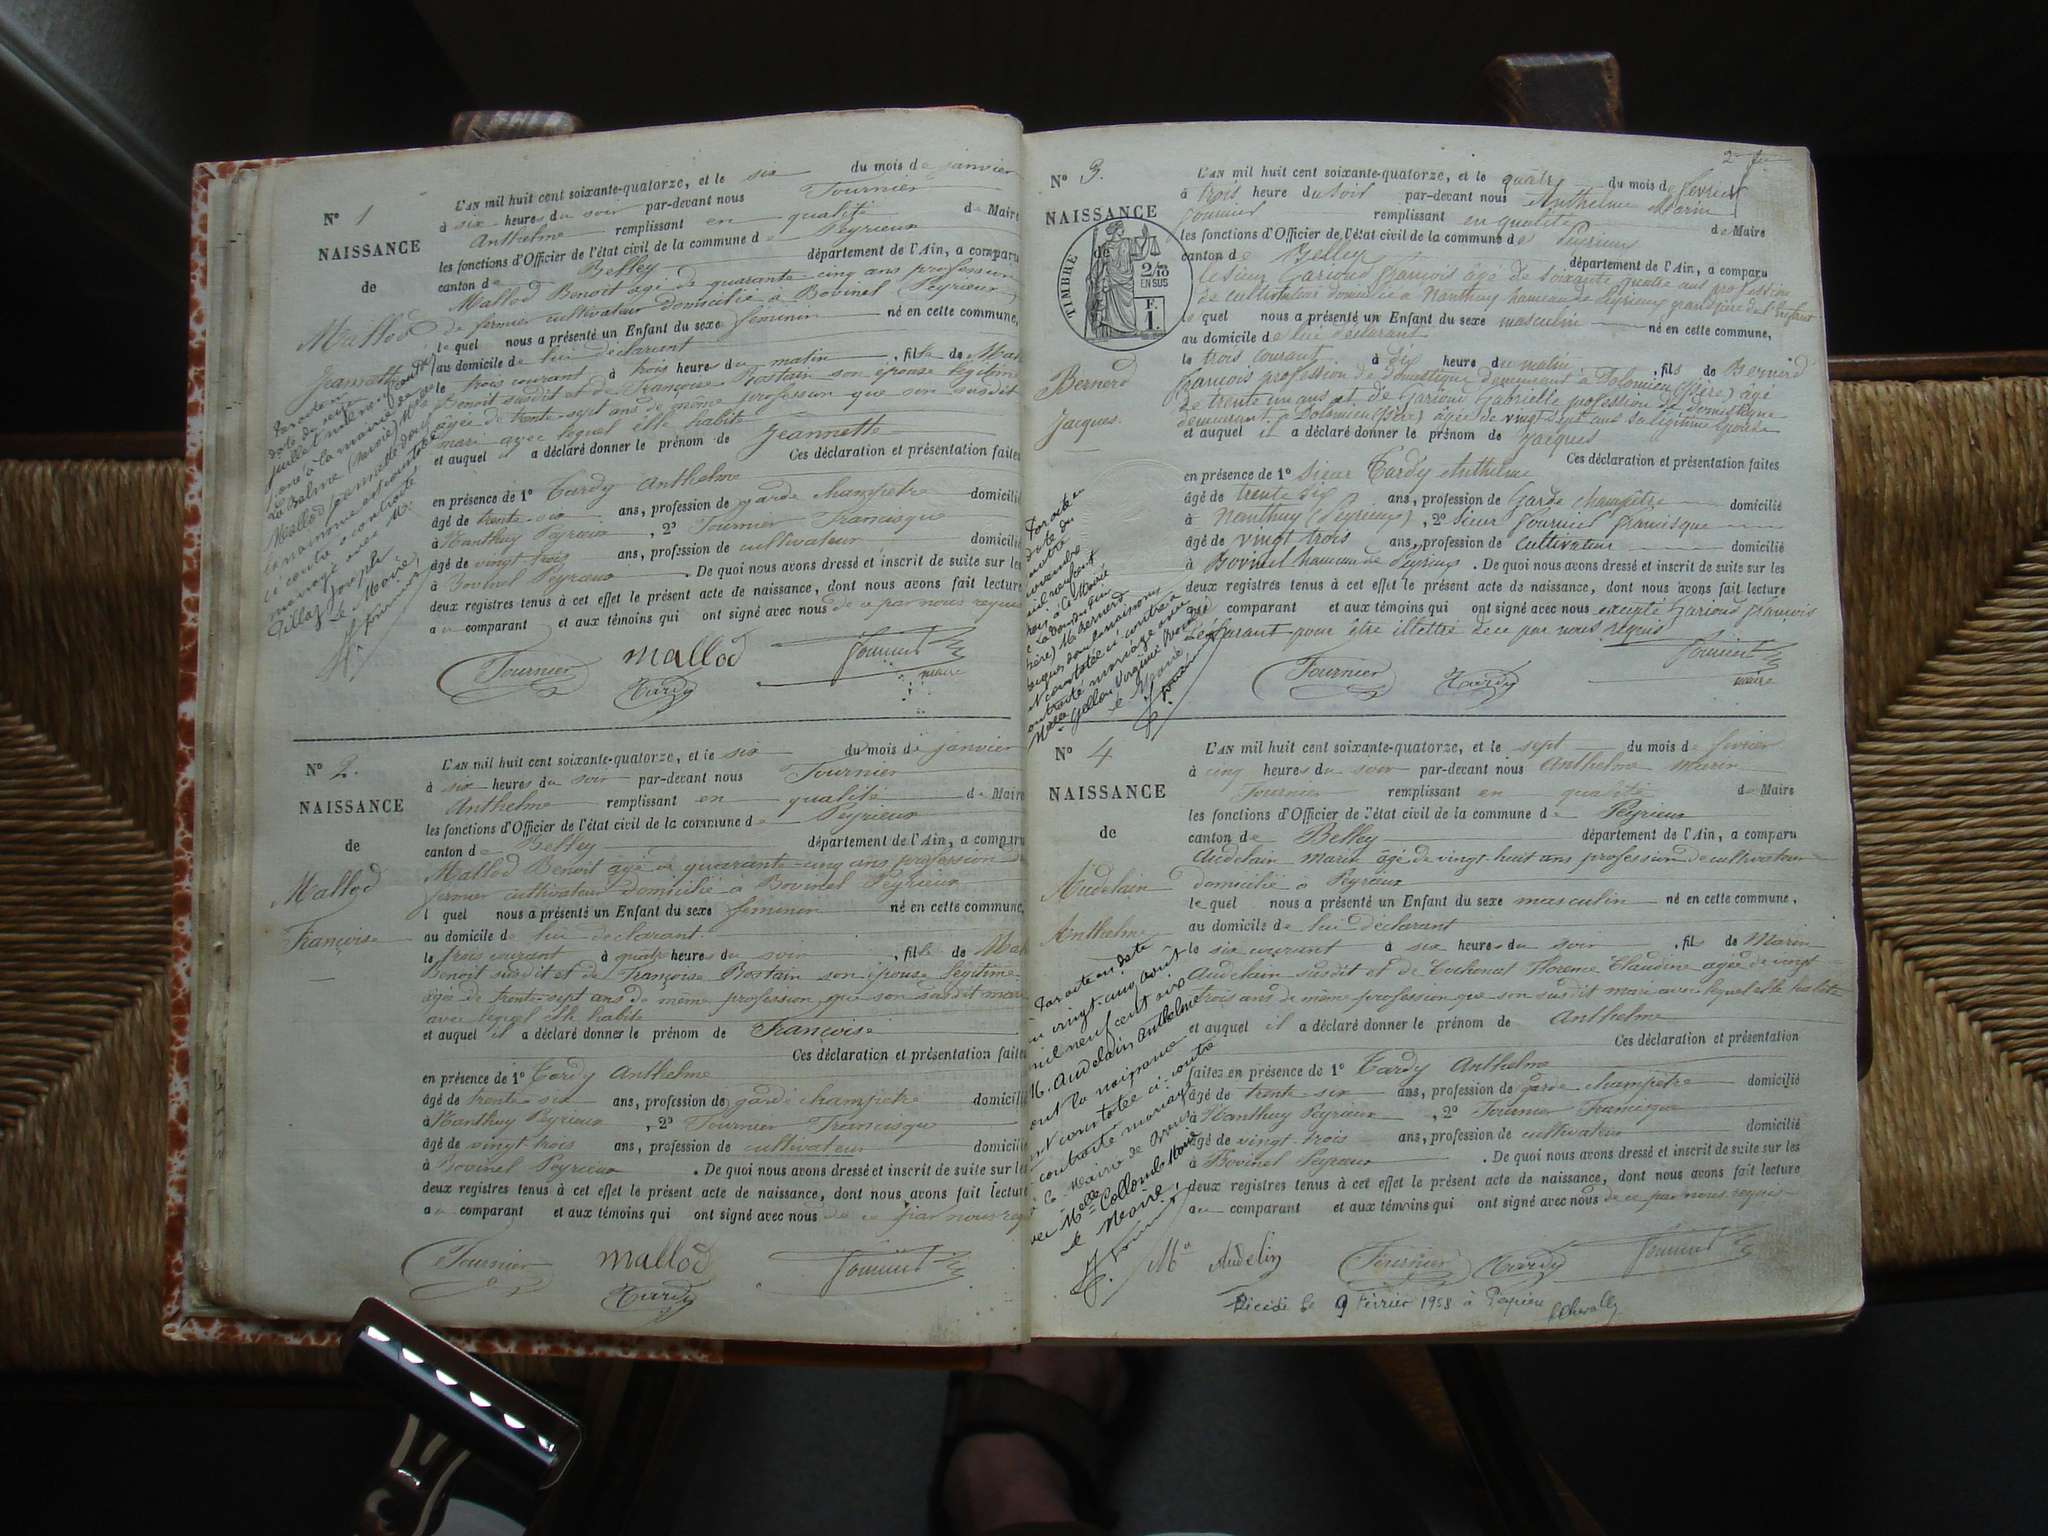 N° 1
NAISSANCE
de
Mallod
Jeannette
L'AN mil huit cent soixante-quatorze, et le six du mois de janvier
à six heures du soir par-devant nous Fournier
Anthelme remplissant en qualité de Maire
les fonctions d'Officier de l'état civil de la commune de Peyrieux
canton de Belley département de l'Ain, a comparu
Mallod Benoit âgé de quarante-cinq ans profession
de fermier cultivateur domicilié à Bovinel (Peyrieux)
le quel nous a présenté un Enfant du sexe féminin né en cette commune,
au domicile de lui déclarant
le trois courant à trois heures du matin, fille de Mal
Benoit susdit et de Françoise Rostain son épouse légitime
âgée de trente-sept ans de même profession que son susdit
mari avec lequel elle habite
et auquel a déclaré donner le prénom de Jeannette
Ces déclaration et présentation faites
en présence de 1° Tardy Anthelme
âgé de trente-six ans, profession de garde champêtre domicilié
à Nanthuy Peyrieux, 2° Fournier Francisque
âgé de vingt trois ans, profession de cultivateur domicilié
à Bovinel Peyrieux. De quoi nous avons dressé et inscrit de suite sur les
deux registres tenus à cet effet le présent acte de naissance, dont nous avons fait lecture
au comparant et aux témoins qui ont signé avec nous de ce par nous requis
Fournier Mallod Fournier
Tardy maire
Par acte en
date du
juillet mil neuf cent
à la mairie de
La Balme
Mallod Jeannette dont
la naissance est constatée
ci-contre a contracté
mariage avec M.
Tillaz Joseph
Le Maire,
Fournier
N° 2.
NAISSANCE
de
Mallod
Françoise
L'AN mil huit cent soixante-quatorze, et le six du mois de janvier
à six heures du soir par-devant nous Fournier
Anthelme remplissant en qualité de Maire
les fonctions d'Officier de l'état civil de la commune de Peyrieux
canton de Belley département de l'Ain, a comparu
Mallod Benoit âgé de quarante-cinq ans profession de
fermier cultivateur domicilié à Bovinel Peyrieux
l quel nous a présenté un Enfant du sexe féminin né en cette commune,
au domicile de lui déclarant.
le trois courant à quatre heures du soir, fille de Mal
Benoit susdit et de Françoise Rostain son épouse légitime
âgée de trente-sept ans de même profession que son susdit mari
avec lequel elle habite
et auquel il a déclaré donner le prénom de Françoise
Ces déclaration et présentation faites
en présence de 1° Tardy Anthelme
âgé de trente six ans, profession de garde champêtre domicilié
à Nanthuy Peyrieux, 2° Fournier Francisque
âgé de vingt trois ans, profession de cultivateur domicilié
à Bovinel Peyrieux. De quoi nous avons dressé et inscrit de suite sur les
deux registres tenus à cet effet le présent acte de naissance, dont nous avons fait lecture
au comparant et aux témoins qui ont signé avec nous de ce par nous req
Fournier Mallod Fournier
Tardy
N° 3.
NAISSANCE
de
TIMBRE
2/10
EN SUS
F.
1.
Bernerd
Jacques.
L'AN mil huit cent soixante-quatorze, et le quatre du mois de février
à trois heure du soir par-devant nous Anthelme Marin
Fournier remplissant en qualité de Maire
les fonctions d'Officier de l'état civil de la commune de Peyrieux
canton de Belley département de l'Ain, a comparu
le sieur Carioud François âgé de soixante quatre ans profession
de cultivateur domicilié à Nanthuy hameau de Peyrieux grand père de l'enfant
le quel nous a présenté un Enfant du sexe masculin né en cette commune,
au domicile de lui déclarant
le trois courant à dix heure du matin, fils de Bernerd
François profession de domestique demeurant à Dolomieu (Isère) âgé
de trente un ans et de Carioud Gabrielle profession de domestique
demeurant à Dolomieu (Isère) âgée de vingt sept ans sa légitime épouse
et auquel il a déclaré donner le prénom de Jacques
Ces déclaration et présentation faites
en présence de 1° Sieur Tardy Anthelme
âgé de trente six ans, profession de Garde champêtre domicilié
à Nanthuy (Peyrieux), 2° Sieur Fournier francisque
âgé de vingt trois ans, profession de cultivateur domicilié
à Bovinel hameau de Peyrieux. De quoi nous avons dressé et inscrit de suite sur les
deux registres tenus à cet effet le présent acte de naissance, dont nous avons fait lecture
au comparant et aux témoins qui ont signé avec nous excepté Carioud françois
déclarant pour être illettré de ce par nous requis
Fournier Tardy Fournier
maire
Par acte en
date du
novembre
mil neuf cent
trois à la Mairie
de La
M. Bernerd
Jacques dont la naissance
est constatée ci-contre a
contracté mariage avec
Melle Gallon Virginie
Le Maire
Fournier
N° 4
NAISSANCE
de
Audelain
Anthelme
L'AN mil huit cent soixante-quatorze, et le sept du mois de février
à cinq heures du soir par-devant nous Anthelme Marin
Fournier remplissant en qualité de Maire
les fonctions d'Officier de l'état civil de la commune de Peyrieux
canton de Belley département de l'Ain, a comparu
Audelain Marin âgé de vingt huit ans profession de cultivateur
domicilié à Peyrieux
le quel nous a présenté un Enfant du sexe masculin né en cette commune,
au domicile de lui déclarant
le six courant à six heures du soir, fils de Marin
Audelain susdit et de Cochonat Florence Claudine âgée de vingt
trois ans de même profession que son susdit mari avec lequel elle habite
et auquel il a déclaré donner le prénom de Anthelme
Ces déclaration et présentation
faites en présence de 1° Tardy Anthelme
âgé de trente-six ans, profession de garde champêtre domicilié
à Nanthuy Peyrieux, 2° Fournier Francisque
âgé de vingt-trois ans, profession de cultivateur domicilié
à Bovinel Peyrieux. De quoi nous avons dressé et inscrit de suite sur les
deux registres tenus à cet effet le présent acte de naissance, dont nous avons fait lecture
au comparant et aux témoins qui ont signé avec nous de ce par nous requis
Mⁿ Audelin Fournier Tardy Fournier
Décédé le 9 Février 1958 à
Par acte en date
du vingt-cinq août
mil neuf cent six
M. Audelain Anthelme
dont la naissance
est constatée ci-contre
a contracté mariage
à la Mairie de
avec Melle Collomb Marie
Le Maire,
Fournier